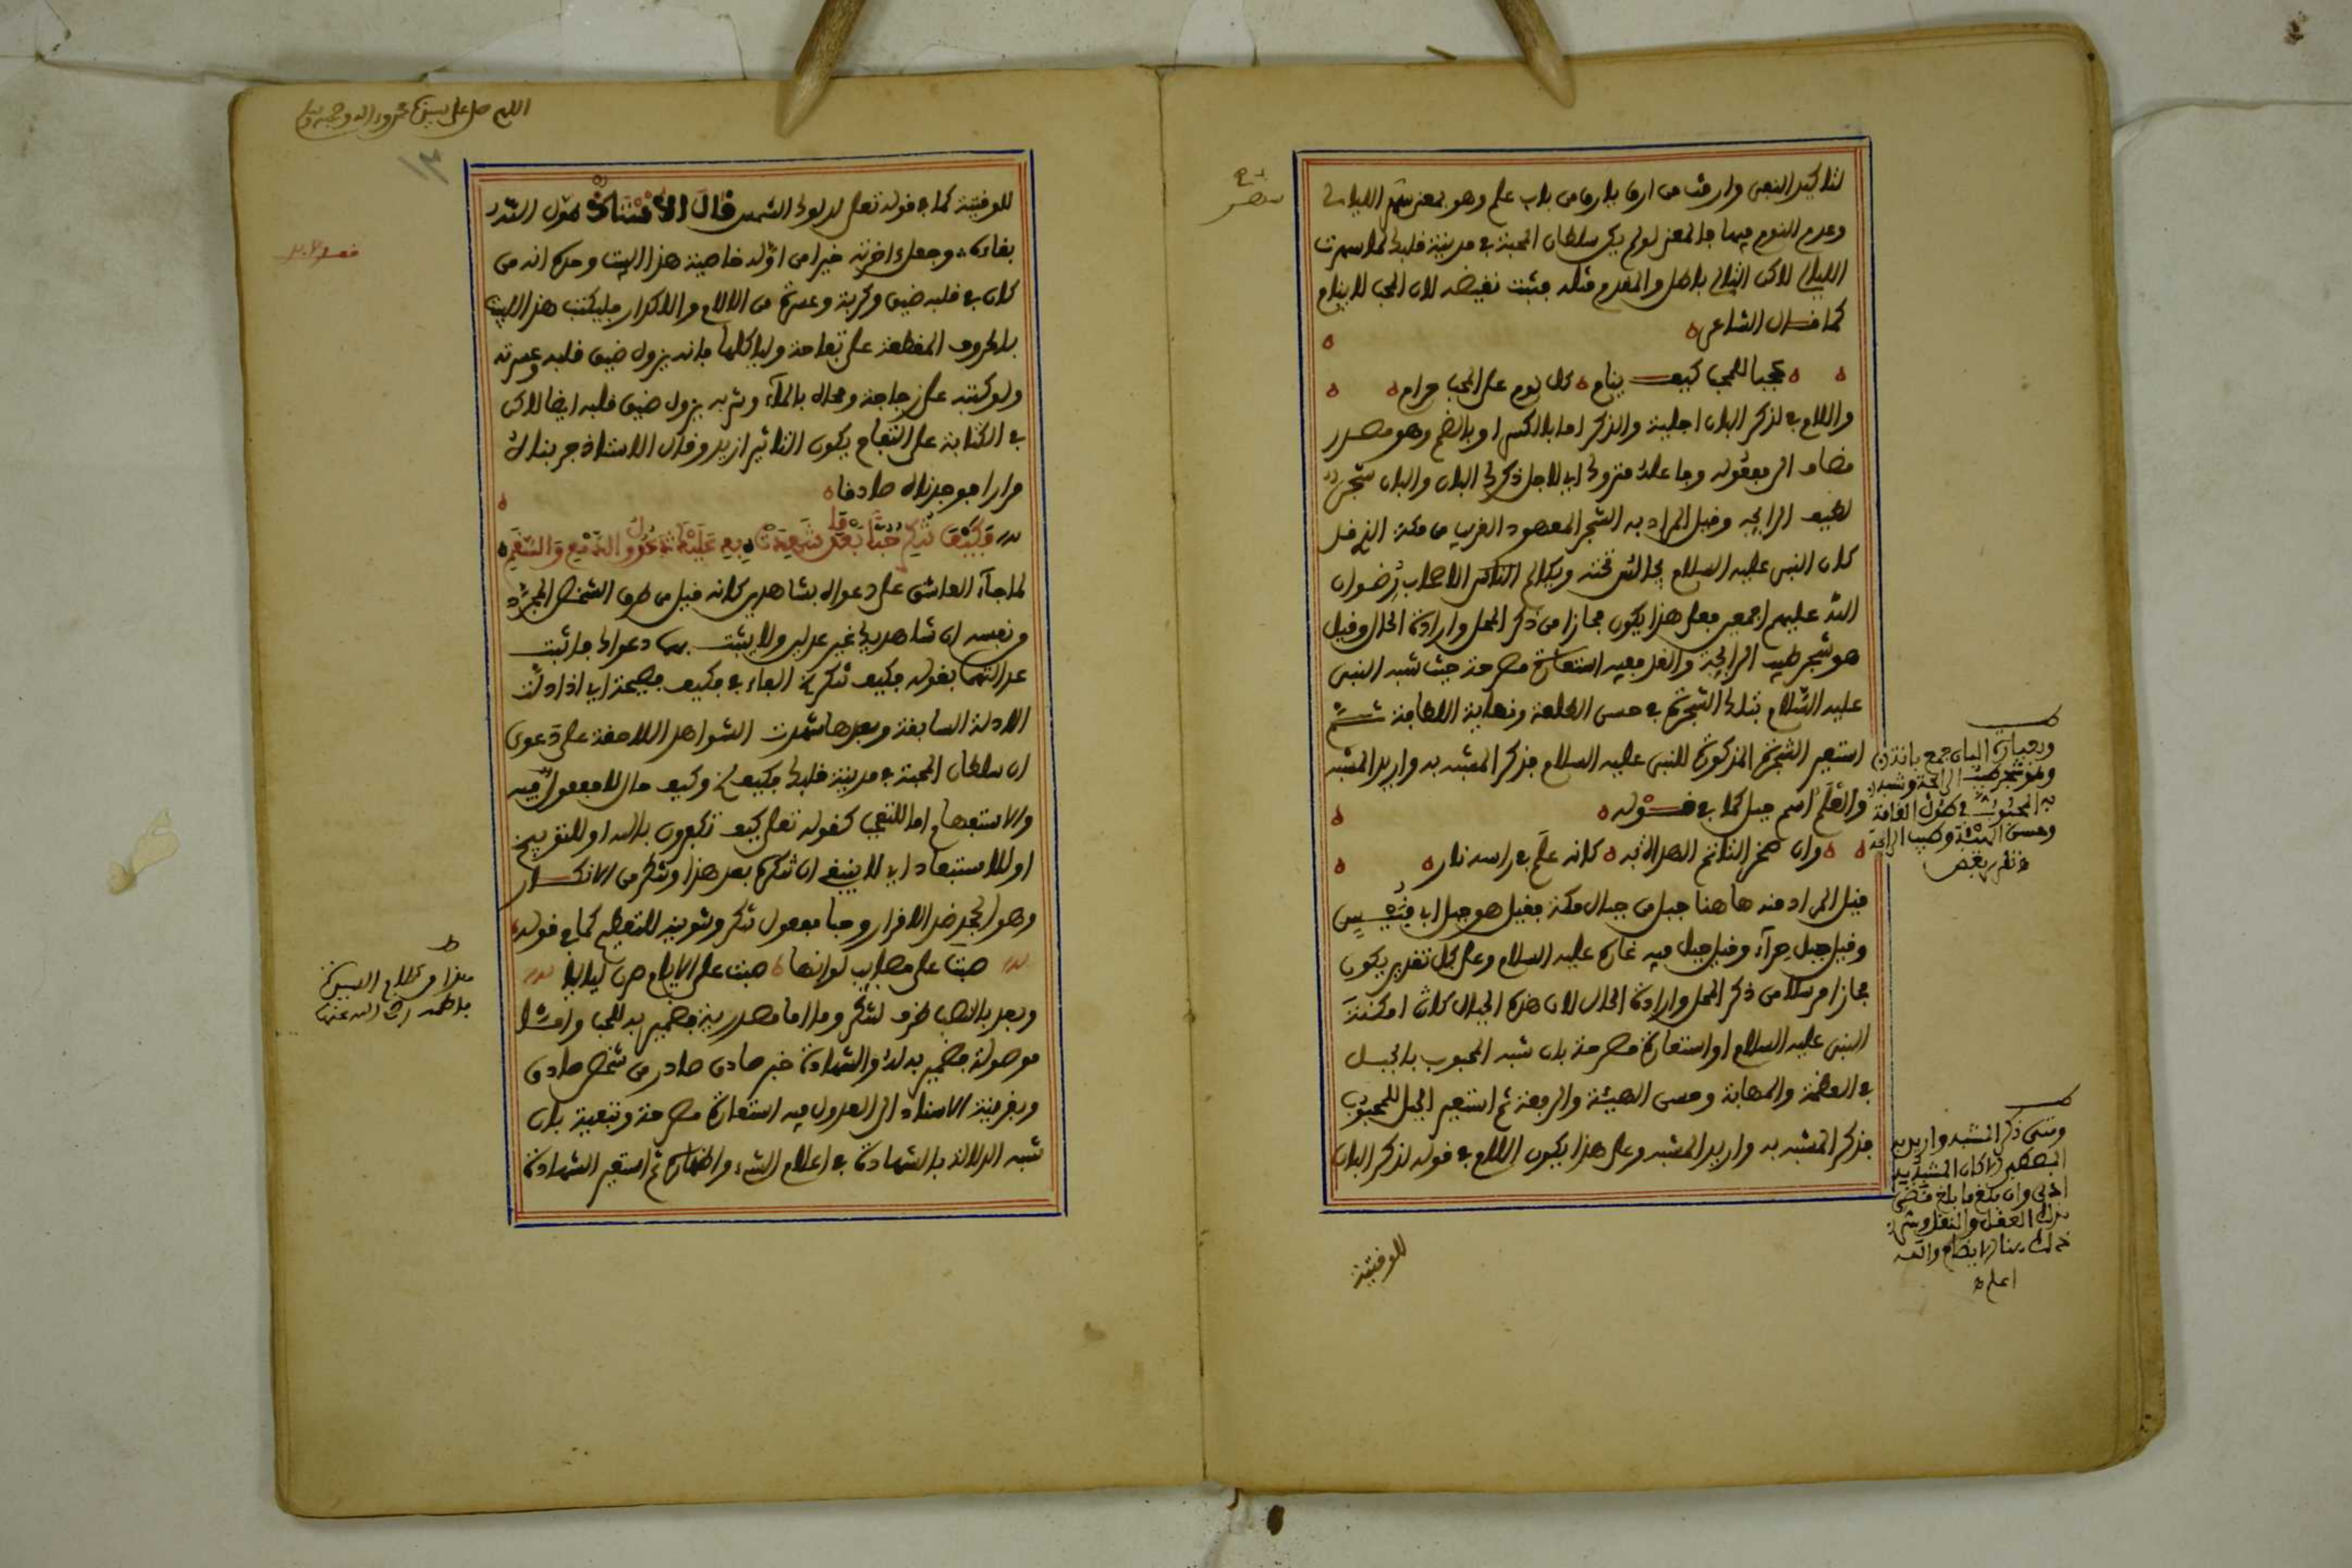 لتاكيد النفي وارقت من ارق يارق من باب علم وهو بمعنى سهر الليالى
وعدم النوم فيها فالمعنى لو لم يكن سلطان المحبة في مدينة قلبك لما سهرت
الليالي لاكن التالي باطل والمقدم مثله فثبت نقيضه لان المحب لا ينام
كما قال الشاعر
عجبا للمحب كيف ينام كل نوم على المحب حرام
واللام في لذكر البان اجلية والذكر اما بالكسر او بالضم وهو مصدر
مضاف الى مفعوله وفاعله متروك اي لاجل ذكرك البان والبان شجر
لطيف الرايحة وقيل المراد به الشجر المعهود القريب من مكة الذي قيل
كان النبي عليه السلام يجالس تحته ويكالم الناس الاصحاب رضوان
الله عليهم اجمعين فعلى هذا يكون مجازا من ذكر المحل وارادة الحال وقيل
هو شجر طيب الرايحة والقد ففيه استعارة مصرحة حيث شبه النبي
عليه السلام بتلك الشجرة في حسن الطلعة ونهاية اللطافة ثم
استعير الشجرة المذكورة للنبي عليه السلام فذكر المشبه به واريد المشبه
والعلم اسم جبل كما في قوله
وان صخرا لتاتم الهداة به كانه علم في راسه نار
قيل المراد منه هاهنا جبل من جبال مكة فقيل هو جبل ابي قبيس
وقيل جبل حراء وقيل جبل فيه غاره عليه السلام وعلى كل تقدير يكون
مجازا مرسلا من ذكر المحل وارادة الحال لان هذه الجبال كانت امكنة
النبي عليه السلام او استعارة مصرحة بان شبه المحبوب بالجبل
في العظمة والمهابة وحسن الهيئة والرفعة ثم استعير الجبل للمحبوب
فذكر المشبه به واريد المشبه وعلى هذا يكون اللام في قوله لذكر البان
للوقتية
البان جمع بانة
وهو شجر طيب الرايحة وشبه
به المحبوب في طول القامة
وحسن الهيئة وطيب الرايحة
ومتى ذكر المشبه واريد به
اعلم
اللهم صل على سيدنا محمد واله وصحبه وسلم
١٣
للوقتية كما في قوله تعالى لدلوك الشمس قال الاستاذ طول الله
بقاءه وجعل اخرته خيرا من اوله خاصية هذا البيت وحده انه من
كان في قلبه ضيق وكربة وعسرة من الالام والاكدار فليكتب هذا البيت
بالحروف المقطعة على تفاحة ولياكلها فانه يزول ضيق قلبه وعسرته
ولو كتبه على زجاجة ومحاه بالماء وشربه يزول ضيق قلبه ايضا لاكن
في الكتابة على التفاح يكون التاثير ازيد وقال الاستاذ جربناه
مرارا فوجدناه صادقا
فكيف تنكر حبا بعد ما شهدت به عليك عدول الدمع والسقم
لما جاء العاشق على دعواه بشاهدين كانه قيل من طرف الشخص المجرد
من نفسه ان شاهديك غير عدلين ولا يثبت بهما دعواك فاثبت
عدالتهما بقوله فكيف تنكر الخ الفاء في فكيف فصيحة اي اذا دلت
الادلة السابقة وبعدها شهدت الشواهد اللاحقة على دعوى
ان سلطان المحبة في مدينة قلبك فكيف الخ وكيف حال لا مفعول فيه
والاستفهام اما للتعجب كقوله تعالى كيف تكفرون بالله او للتوبيخ
او للاستبعاد اي لا ينبغي ان تنكره بعد هذا وتنكر من الانكار
وهو الجحد ضد الاقرار وحبا مفعول تنكر وتنوينه للتعظيم كما في قوله
صبت علي مصايب لو انها صبت على الايام صرن لياليا
وبعد بالنصب ظرف لتنكر وما اما مصدرية فضمير به للحب واما
موصولة فضمير به له والشهادة خبر صادق صادر من شخص صادق
وبقرينة الاسناد الى العدول فيه استعارة مصرحة وتبعية بان
شبه الدلالة بالشهادة في اعلام الشيء واظهاره ثم استعير الشهادة
هذا من كلام السيدة
فاطمة رضي الله عنها